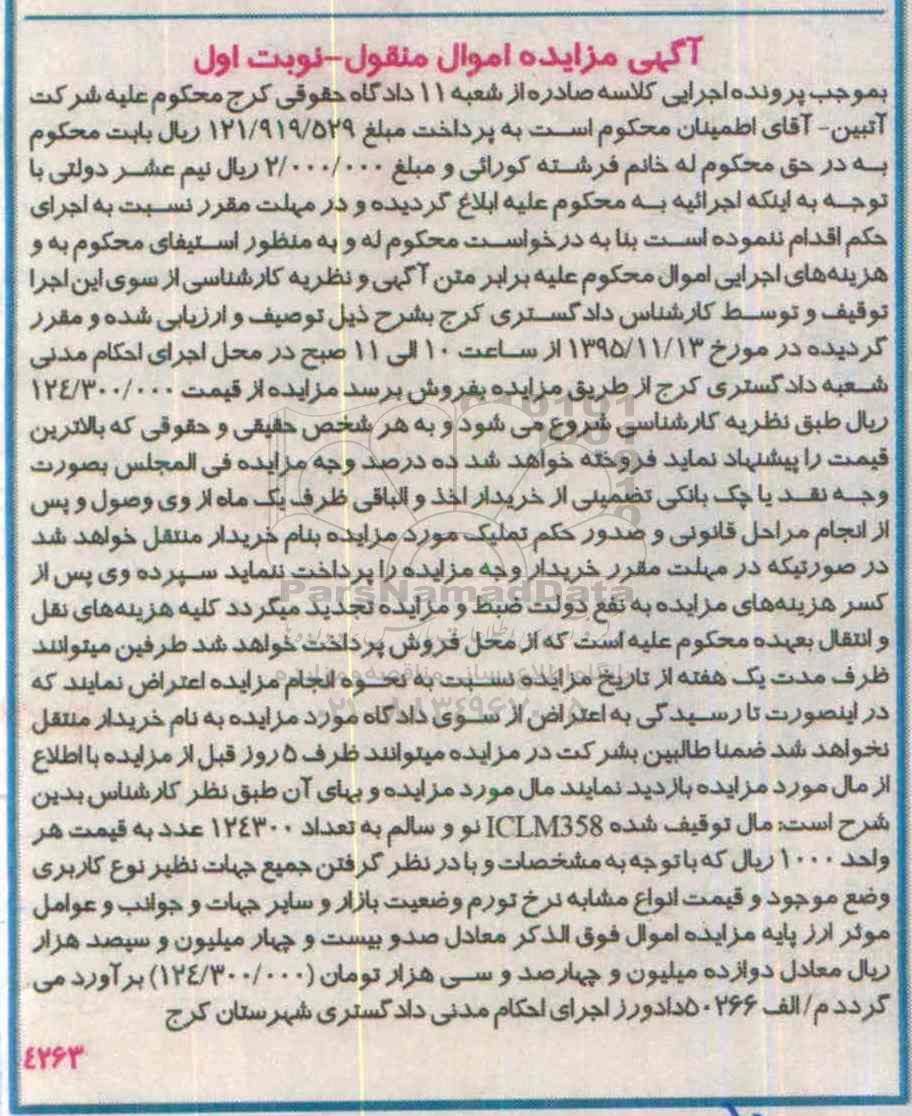 آگهی مزایده اموال منقول-نوبت اول
بموجب پرونده اجرایی کلاسه صادره از شعبه ۱۱ دادگاه حقوقی کرج محکوم علیه شرکت
آتبین- آقای اطمینان محکوم است به پرداخت مبلغ ۱۲۱/۹۱۹/۵۲۹ ریال بابت محکوم
به در حق محکوم له خانم فرشته کورائی و مبلغ ۲/۰۰۰/۰۰۰ ریال نیم عشر دولتی با
توجه به اینکه اجرائیه به محکوم علیه ابلاغ گردیده و در مهلت مقرر نسبت به اجرای
حکم اقدام ننموده است بنا به درخواست محکوم له و به منظور استیفای محکوم به و
هزینه‌های اجرایی اموال محکوم علیه برابر متن آگهی و نظریه کارشناسی از سوی این اجرا
توقیف و توسط کارشناس دادگستری کرج بشرح ذیل توصیف و ارزیابی شده و مقرر
گردیده در مورخ ۱۳۹۵/۱۱/۱۳ از ساعت ۱۰ الی ۱۱ صبح در محل اجرای احکام مدنی
شعبه دادگستری کرج از طریق مزایده بفروش برسد مزایده از قیمت ۱۲۴/۳۰۰/۰۰۰
ریال طبق نظریه کارشناسی شروع می شود و به هر شخص حقیقی و حقوقی که بالاترین
قیمت را پیشنهاد نماید فروخته خواهد شد ده درصد وجه مزایده فی المجلس بصورت
وجه نقد یا چک بانکی تضمینی از خریدار اخذ و الباقی ظرف یک ماه از وی وصول و پس
از انجام مراحل قانونی و صدور حکم تملیک مورد مزایده بنام خریدار منتقل خواهد شد
در صورتیکه در مهلت مقرر خریدار وجه مزایده را پرداخت ننماید سپرده وی پس از
ParsNamadData
کسر هزینه‌های مزایده به نفع دولت ضبط و مزایده تجدید میگردد کلیه هزینه‌های نقل
و انتقال بعهده محکوم علیه است که از محل فروش پرداخت خواهد شد طرفین میتوانند
ظرف مدت یک هفته از تاریخ مزایده نسبت به نحوه انجام مزایده اعتراض نمایند که
در اینصورت تا رسیدگی به اعتراض از سوی دادگاه مورد مزایده به نام خریدار منتقل
نخواهد شد ضمنا طالبین بشرکت در مزایده میتوانند ظرف ۵ روز قبل از مزایده با اطلاع
از مال مورد مزایده بازدید نمایند مال مورد مزایده و بهای آن طبق نظر کارشناس بدین
شرح است: مال توقیف شده ICLM358 نو و سالم به تعداد ۱۲۴۳۰۰ عدد به قیمت هر
واحد ۱۰۰۰ ریال که با توجه به مشخصات و با در نظر گرفتن جمیع جهات نظیر نوع کاربری
وضع موجود و قیمت انواع مشابه نرخ تورم وضعیت بازار و سایر جهات و جوانب و عوامل
موثر ارز پایه مزایده اموال فوق الذکر معادل صدو بیست و چهار میلیون و سیصد هزار
ریال معادل دوازده میلیون و چهارصد و سی هزار تومان (۱۲۴/۳۰۰/۰۰۰) برآورد می
گردد م/الف ۵۰۲۶۶دادورز اجرای احکام مدنی دادگستری شهرستان کرج
۴۲۶۳